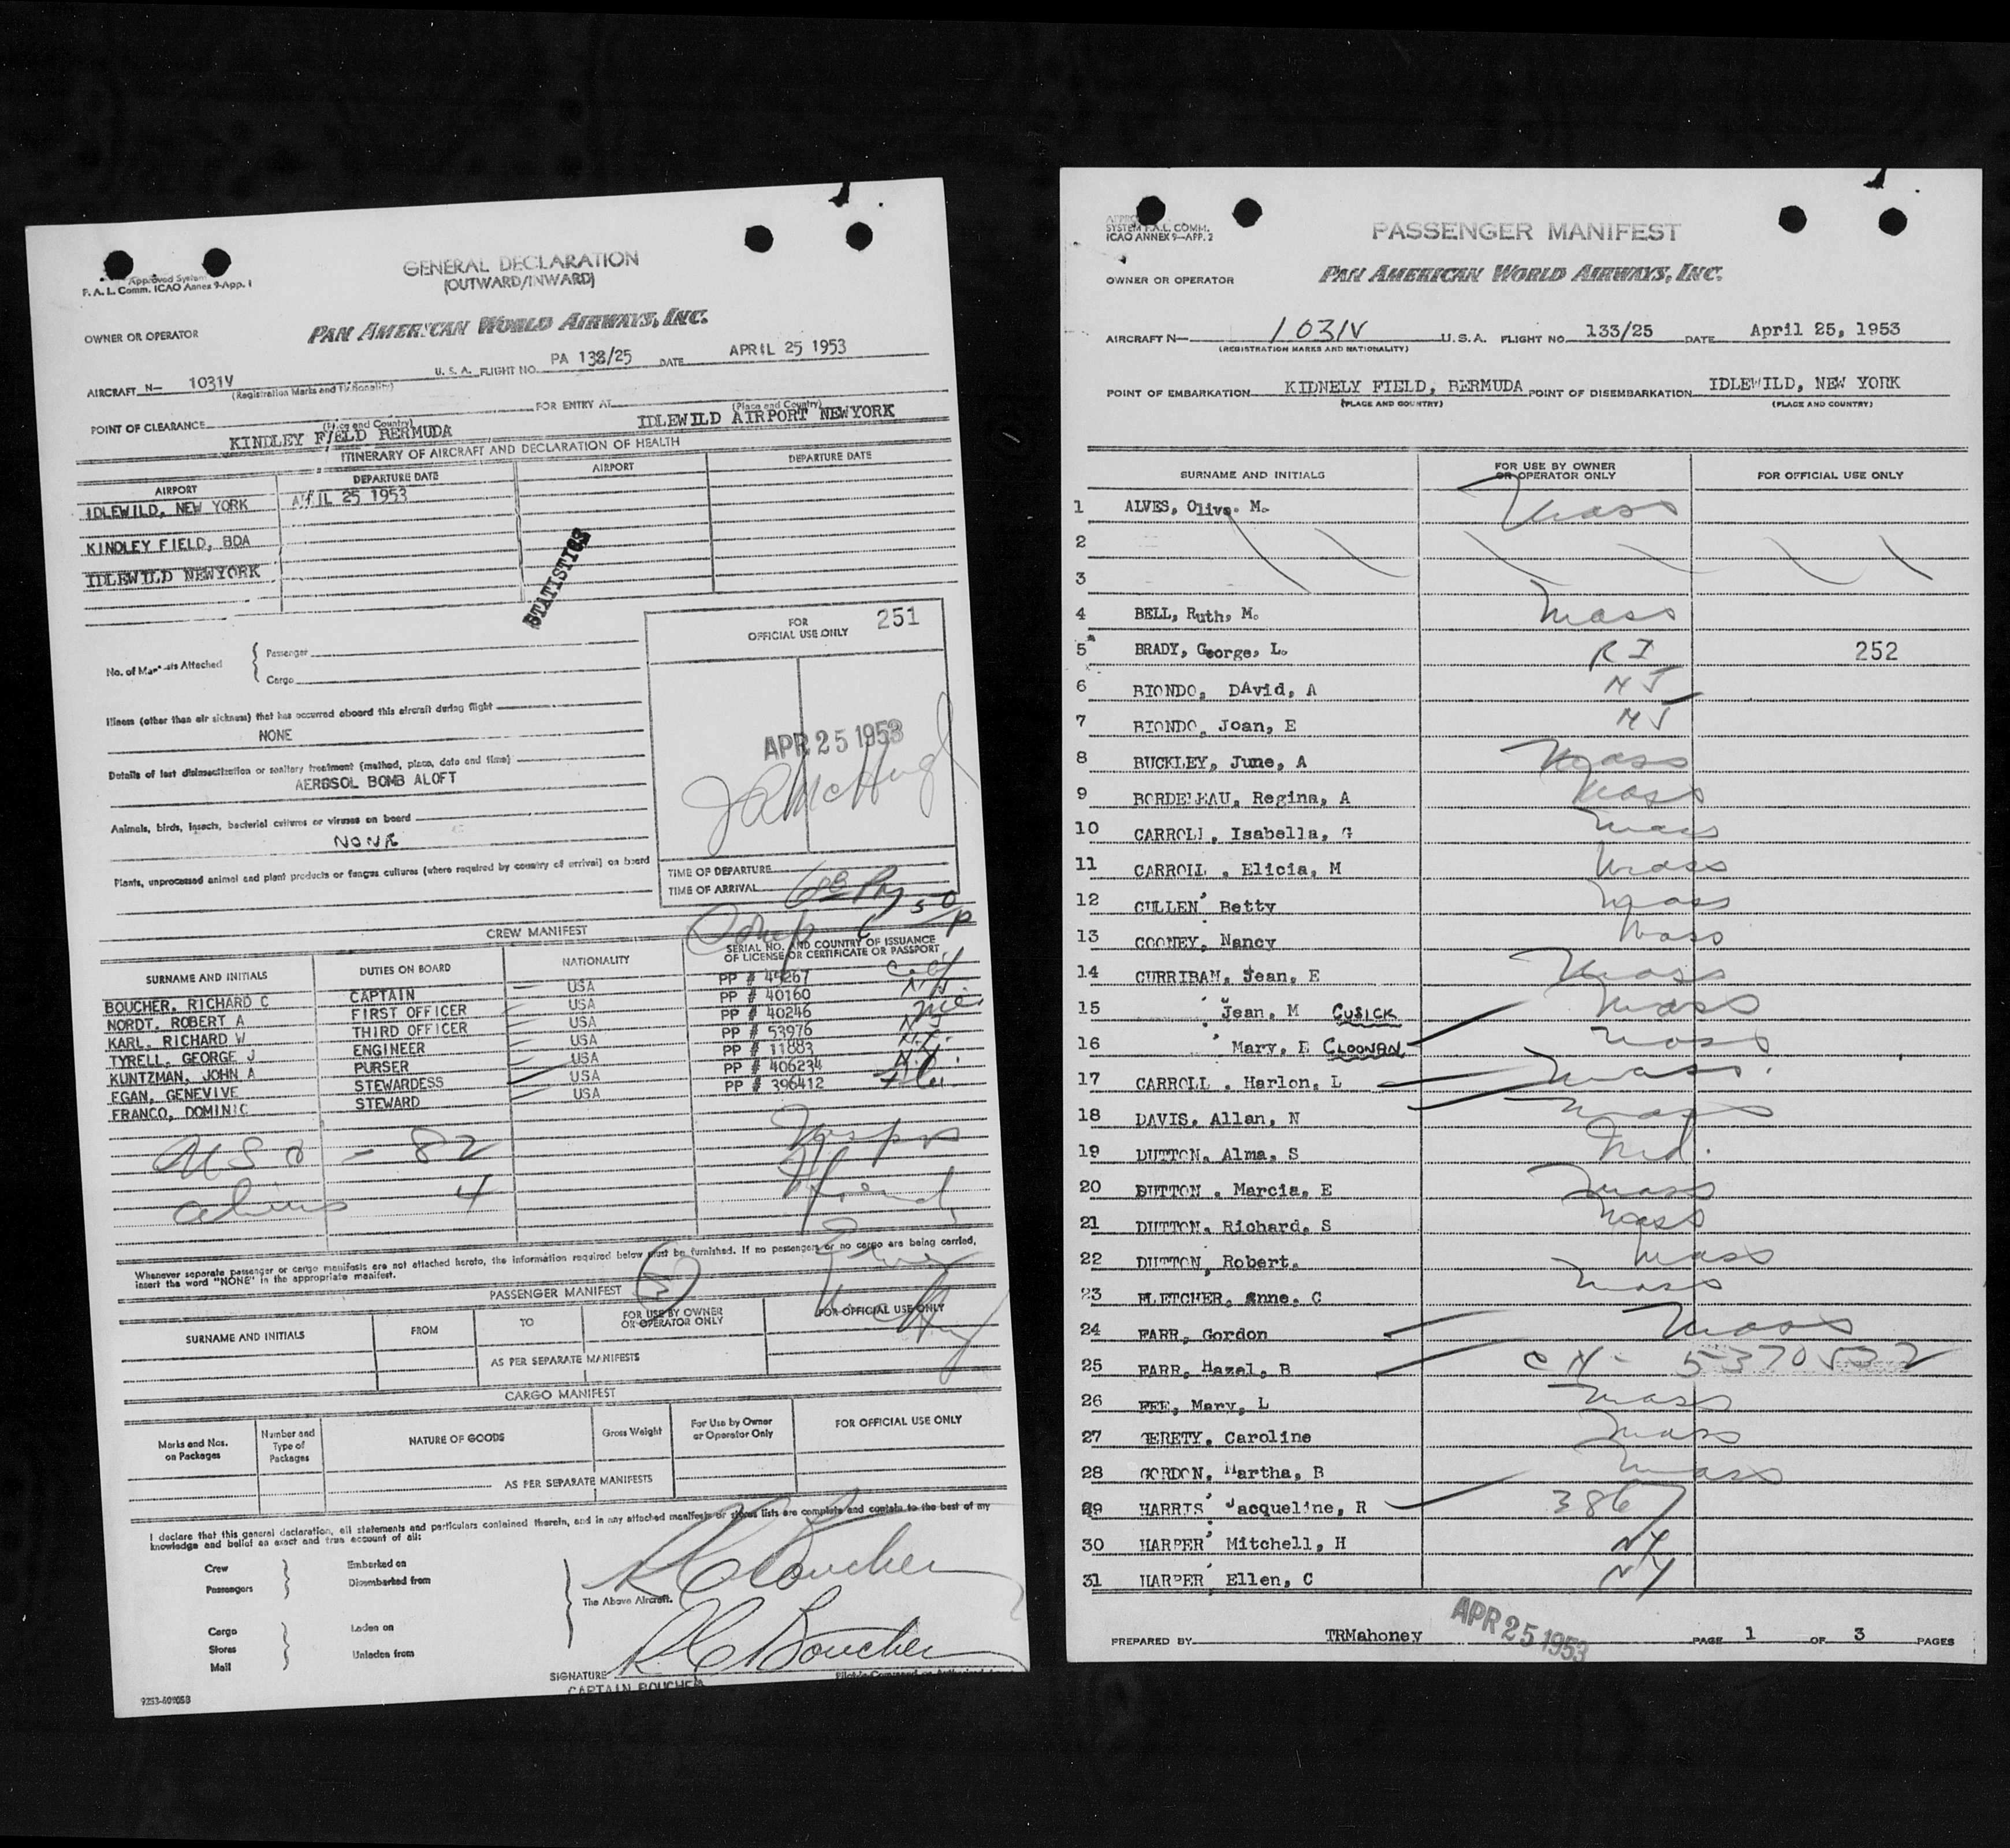 Approved System
F. A. L. Comm. ICAO Annex 9-App. 1
GENERAL DECLARATION
(OUTWARD/INWARD)
OWNER OR OPERATOR
PAN AMERICAN WORLD AIRWAYS, INC.
AIRCRAFT N— 1031V U. S. A. FLIGHT NO. PA 133/25 DATE APRIL 25 1953
(Registration Marks and Nationality)
POINT OF CLEARANCE KINDLEY FIELD BERMUDA FOR ENTRY AT IDLEWILD AIRPORT NEWYORK
(Place and Country) (Place and Country)
ITINERARY OF AIRCRAFT AND DECLARATION OF HEALTH
AIRPORT DEPARTURE DATE AIRPORT DEPARTURE DATE
IDLEWILD, NEW YORK APRIL 25 1953
KINDLEY FIELD, BDA
IDLEWILD NEWYORK
STATISTICS
No. of Manifests Attached
Passenger
Cargo
FOR OFFICIAL USE ONLY 251
Illness (other than air sickness) that has occurred aboard this aircraft during flight
NONE
Details of last disinsectization or sanitary treatment (method, place, date and time)
AEROSOL BOMB ALOFT
Animals, birds, insects, bacterial cultures or viruses on board
NONE
Plants, unprocessed animal and plant products or fungus cultures (where required by country of arrival) on board
APR 25 1953
JA McHugh
TIME OF DEPARTURE
TIME OF ARRIVAL
CREW MANIFEST
SURNAME AND INITIALS DUTIES ON BOARD NATIONALITY SERIAL NO. AND COUNTRY OF ISSUANCE OF LICENSE OR CERTIFICATE OR PASSPORT
BOUCHER, RICHARD C CAPTAIN USA PP # 45267
NORDT, ROBERT A FIRST OFFICER USA PP # 40160
KARL, RICHARD W THIRD OFFICER USA PP # 40246
TYRELL, GEORGE J ENGINEER USA PP # 53976
KUNTZMAN, JOHN A PURSER USA PP # 11883
EGAN, GENEVIVE STEWARDESS USA PP # 406234
FRANCO, DOMINIC STEWARD USA PP # 396412
USC = 82
aliens 4
Whenever separate passenger or cargo manifests are not attached hereto, the information required below must be furnished. If no passengers or no cargo are being carried,
insert the word "NONE" in the appropriate manifest.
PASSENGER MANIFEST
SURNAME AND INITIALS FROM TO FOR USE BY OWNER OR OPERATOR ONLY FOR OFFICIAL USE ONLY
AS PER SEPARATE MANIFESTS
CARGO MANIFEST
Marks and Nos. on Packages Number and Type of Packages NATURE OF GOODS Gross Weight For Use by Owner or Operator Only FOR OFFICIAL USE ONLY
AS PER SEPARATE MANIFESTS
I declare that this general declaration, all statements and particulars contained therein, and in any attached manifests or stores lists are complete and contain to the best of my
knowledge and belief an exact and true account of all:
Crew Embarked on
Passengers Disembarked from
The Above Aircraft.
R C Boucher
Cargo Laden on
Stores
Mail Unladen from
SIGNATURE R C Boucher
CAPTAIN BOUCHER
9253-60905B
SYSTEM F.A.L. COMM.
ICAO ANNEX 9—APP. 2
PASSENGER MANIFEST
OWNER OR OPERATOR PAN AMERICAN WORLD AIRWAYS, INC.
AIRCRAFT N— 1031V U.S.A. FLIGHT NO. 133/25 DATE April 25, 1953
(REGISTRATION MARKS AND NATIONALITY)
POINT OF EMBARKATION KIDNELY FIELD, BERMUDA POINT OF DISEMBARKATION IDLEWILD, NEW YORK
(PLACE AND COUNTRY) (PLACE AND COUNTRY)
SURNAME AND INITIALS FOR USE BY OWNER OR OPERATOR ONLY FOR OFFICIAL USE ONLY
1 ALVES, Olive. M. Mass
2
3
4 BELL, Ruth, M. Mass
5 BRADY, George, L. R I 252
6 BIONDO, DAvid, A N J
7 BIONDO, Joan, E N J
8 BUCKLEY, June, A Mass
9 BORDELEAU, Regina, A Mass
10 CARROLL, Isabella, G Mass
11 CARROLL, Elicia, M Mass
12 CULLEN, Betty Mass
13 COONEY, Nancy Mass
14 CURRIBAN, Jean, E Mass
15 Jean, M CUSICK Mass
16 Mary, E CLOONAN Mass
17 CARROLL, Harlon, L Mass.
18 DAVIS, Allan, N Mass
19 DUTTON, Alma, S Md.
20 DUTTON, Marcia, E Mass
21 DUTTON, Richard, S Mass
22 DUTTON, Robert. Mass
23 FLETCHER, Anne, C Mass
24 FARR, Gordon Mass
25 FARR, Hazel, B CN- 5370532
26 FEE, Mary, L Mass
27 GERETY, Caroline Mass
28 GORDON, Martha, B Mass
29 HARRIS, Jacqueline, R 3867
30 HARPER, Mitchell, H NY
31 HARPER, Ellen, C NY
APR 25 1953
PREPARED BY TRMahoney PAGE 1 OF 3 PAGES